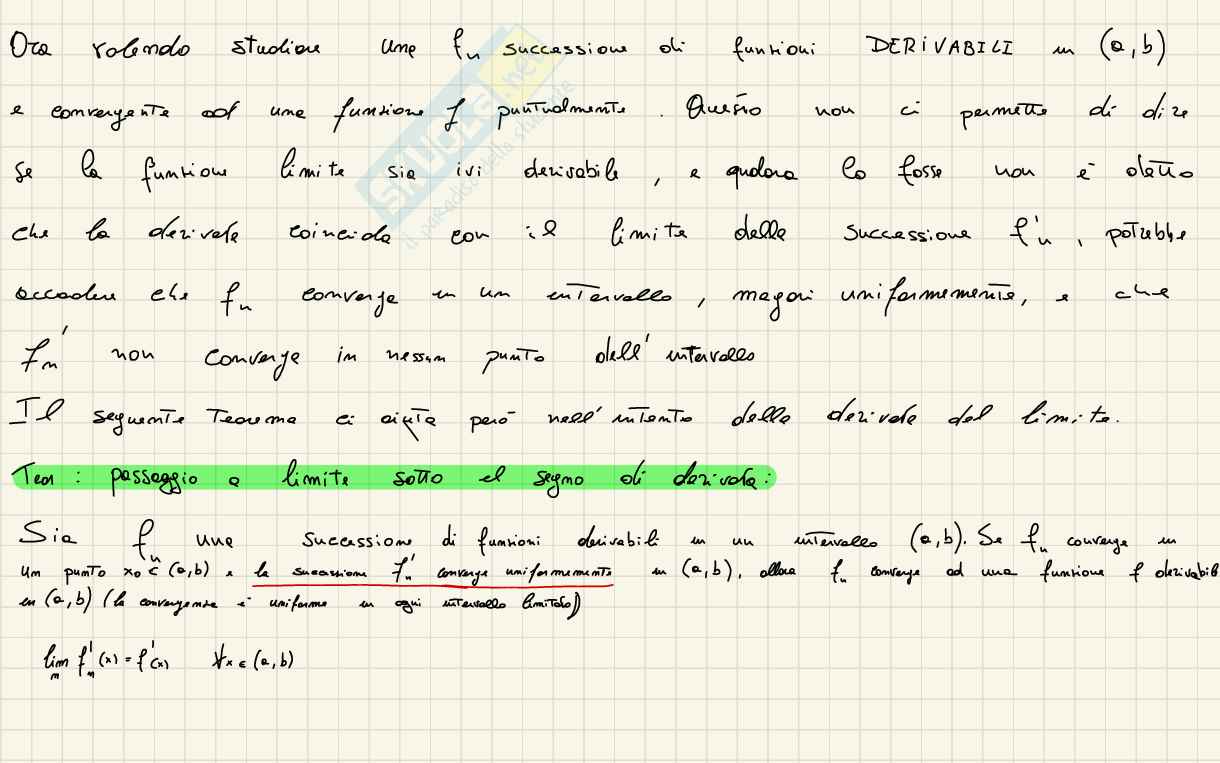 Ora volendo studiare une fn successione di funzioni DERIVABILI in (a,b)
e convergente ad una funzione f puntualmente. Questo non ci permette di dire
se la funzione limite sia ivi derivabile, e qualora lo fosse non è detto
che la derivata coincida con il limite della successione f'n, potrebbe
accadere che fn converge in un intervallo, magari uniformemente, e che
f'n non converge in nessun punto dell'intervallo
Il seguente Teorema ci aiuta però nell'intento della derivata del limite.
Teor: passaggio a limite sotto il segno di derivata:
Sia fn una successione di funzioni derivabili in un intervallo (a,b). Se fn converge in
un punto x0 ∈ (a,b) e la successione f'n converge uniformemente in (a,b), allora fn converge ad una funzione f derivabile
in (a,b) (la convergenza è uniforme in ogni intervallo limitato)
lim n f'n(x) = f'(x) ∀x ∈ (a,b)
SKUOLA.net
il paradiso dello studente